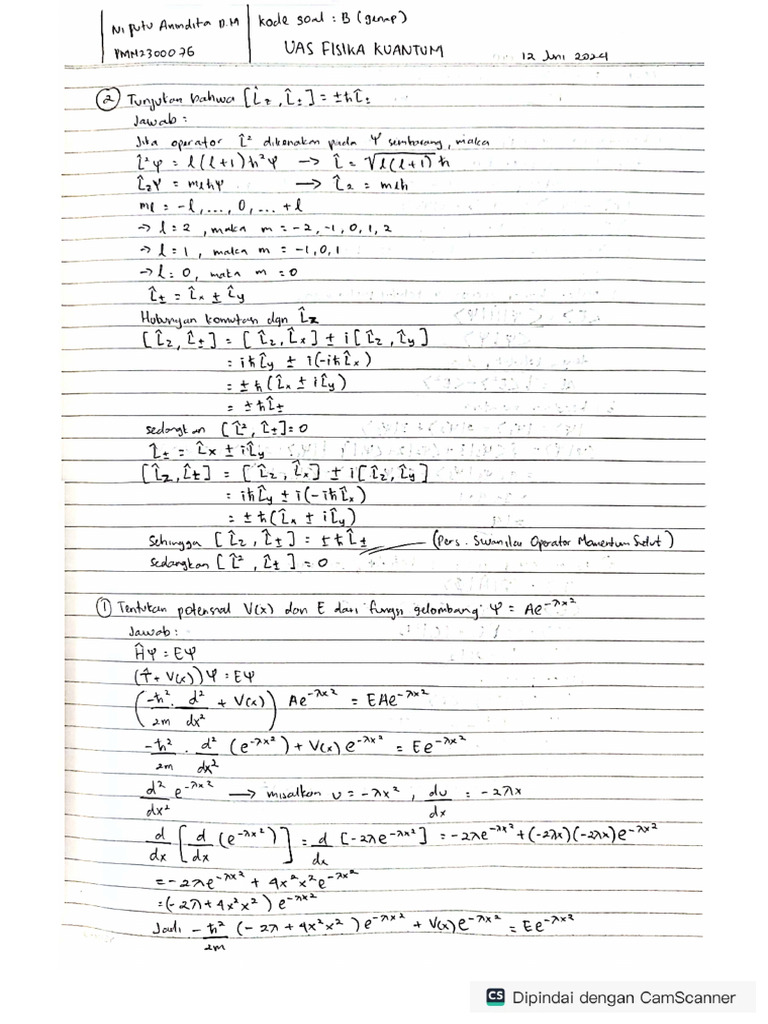 Ni Putu Anindita D.M
PMN2300076
kode soal : B (genap)
UAS FISIKA KUANTUM
12 Juni 2024
② Tunjukan bahwa [L̂z , L̂±] = ±ħL̂±
Jawab :
Jika operator L̂² dikenakan pada Ψ sembarang, maka
L̂²Ψ = l(l+1)ħ²Ψ → L̂ = √l(l+1) ħ
L̂zΨ = mlħΨ → L̂z = mlħ
ml = -l, ..., 0, ... +l
→ l = 2 , maka m = -2, -1, 0, 1, 2
→ l = 1 , maka m = -1, 0, 1
→ l = 0, maka m = 0
L̂± = L̂x ± L̂y
Hubungan komutan dgn L̂z
[L̂z, L̂±] = [L̂z, L̂x] ± i[L̂z, L̂y]
= iħL̂y ± i(-iħL̂x)
= ±ħ(L̂x ± iL̂y)
= ±ħL̂±
sedangkan [L̂², L̂±] = 0
L̂± = L̂x ± iL̂y
[L̂z, L̂±] = [L̂z, L̂x] ± i[L̂z, L̂y]
= iħL̂y ± i(-iħL̂x)
= ±ħ(L̂x ± iL̂y)
Sehingga [L̂z, L̂±] = ±ħL̂± (Pers. Swanilai Operator Momentum Sudut)
Sedangkan [L̂², L̂±] = 0
① Tentukan potensial V(x) dan E dari fungsi gelombang Ψ = Ae^-λx²
Jawab :
ĤΨ = EΨ
(T̂ + V(x))Ψ = EΨ
(-ħ²/2m · d²/dx² + V(x)) Ae^-λx² = EAe^-λx²
-ħ²/2m · d²/dx² (e^-λx²) + V(x)e^-λx² = Ee^-λx²
d²/dx² e^-λx² → misalkan u = -λx² , du/dx = -2λx
d/dx [d/dx (e^-λx²)] = d/dx [-2λe^-λx²] = -2λe^-λx² + (-2λx)(-2λx)e^-λx²
= -2λe^-λx² + 4x²x²e^-λx²
= (-2λ + 4x²x²) e^-λx²
Jadi -ħ²/2m (-2λ + 4x²x²) e^-λx² + V(x)e^-λx² = Ee^-λx²
CS Dipindai dengan CamScanner